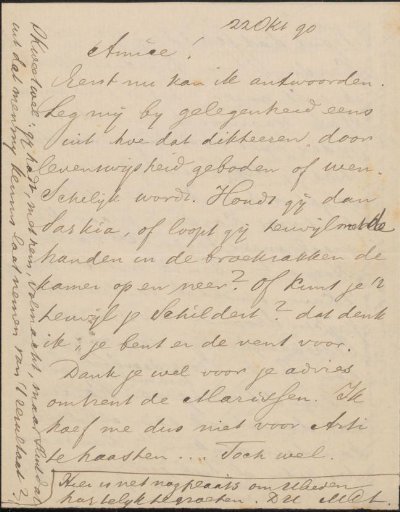 22 Okt 90
Amice!
Eerst nu kan ik antwoorden.
Leg mij by gelegenheid eens
uit hoe dat dikteeren door
levenswijsheid geboden of wen-
schelijk wordt. Houdt gij dan
Saskia, of loopt gij terwijl met de
handen in de broekzakken de
kamer op en neer? Of kunt je 't
terwijl je schildert? dat denk
ik, je bent er de vent voor.
Dank je wel voor je advies
omtrent de Marissen. Ik
hoef me dus niet voor Arti
te haasten .... Toch wel.
Hier is net nog plaats om Ulieden
hartelijk te groeten. DU
Ik weet wel; gij hadt met hem volmacht, maar sluit dat
uit dat men mij kennis laat nemen van 't resultaat?